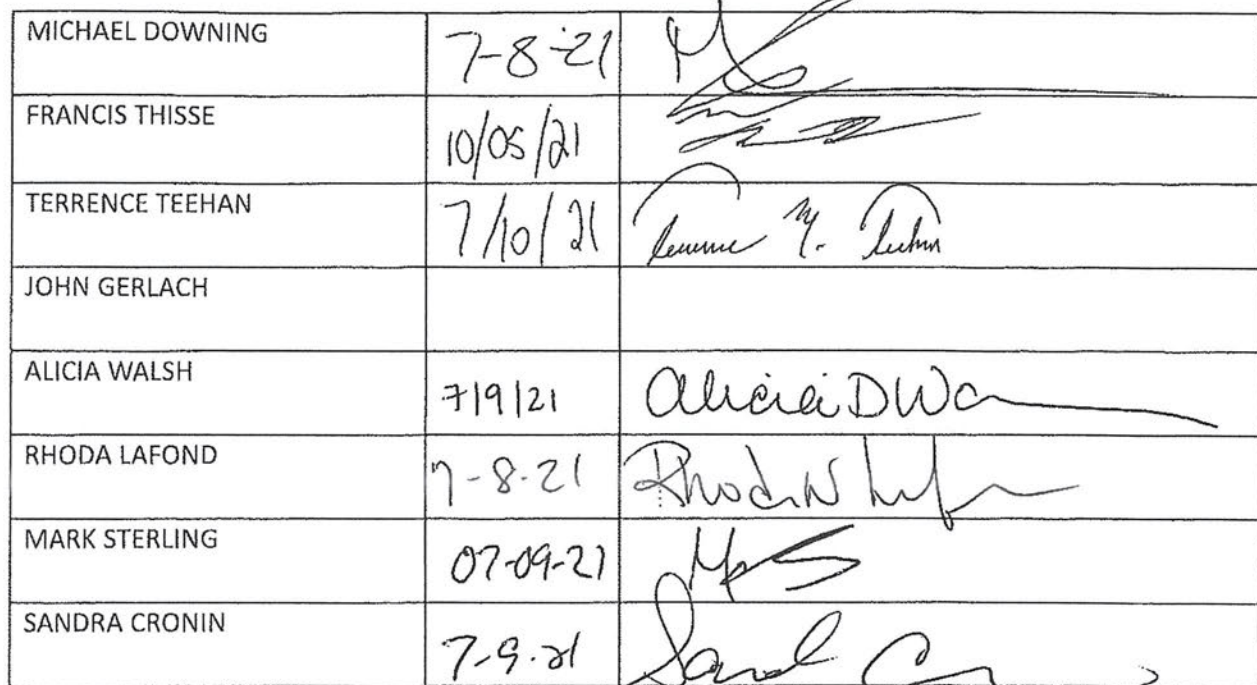 MICHAEL DOWNING 7-8-21
FRANCIS THISSE 10/05/21
TERRENCE TEEHAN 7/10/21
JOHN GERLACH
ALICIA WALSH 7/9/21 Alicia D Wa
RHODA LAFOND 7-8-21 Rhoda N
MARK STERLING 07-09-21
SANDRA CRONIN 7-9-21